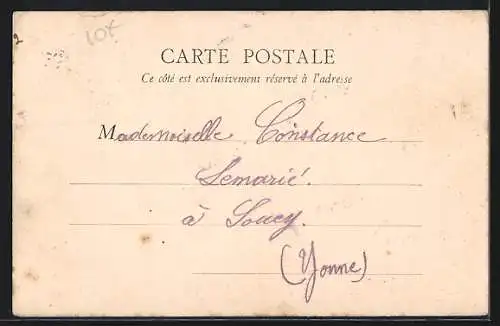 10x
CARTE POSTALE
Ce côté est exclusivement réservé à l'adresse
Mademoiselle Constance
Lemarié.
à Soucy.
(Yonne)